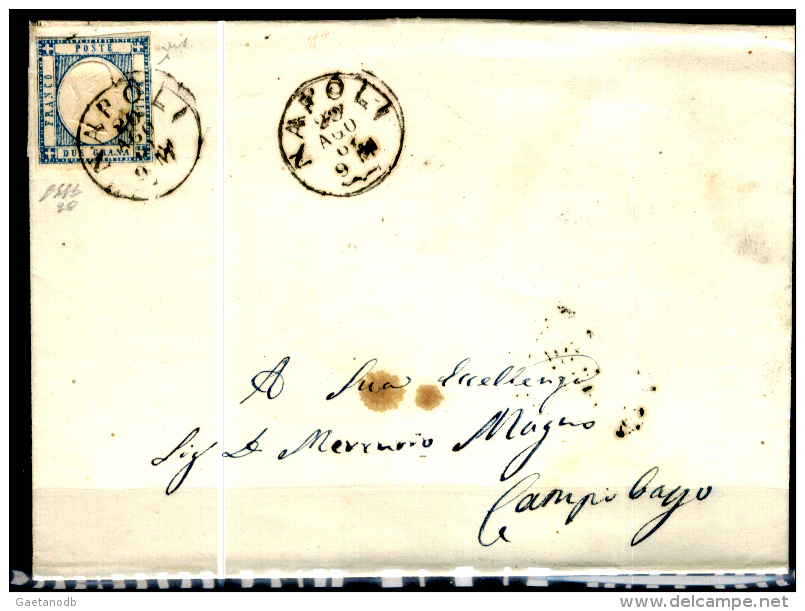 POSTE
FRANCO
DUE GRANA
NAPOLI
20
AGO
9 M
NAPOLI
20
AGO
61
9 M
A Sua Eccellenza
Sig D. Mercurio Magno
Campobasso
Gaetanodb
delcampe.net